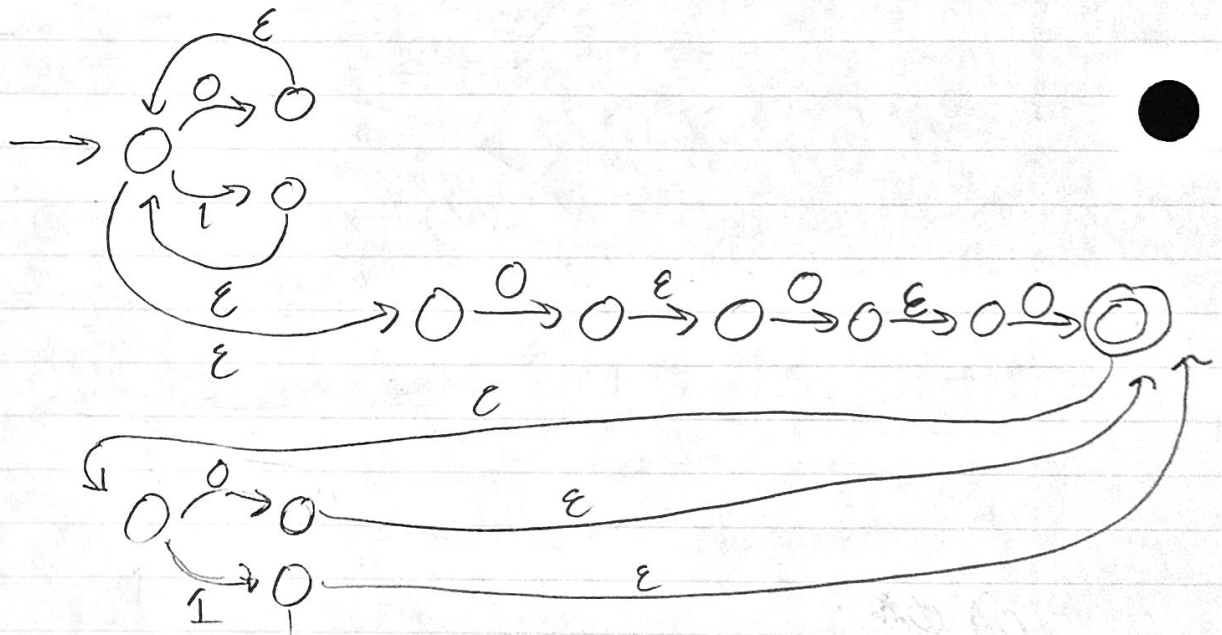 ε
0
1
ε
0 ε 0 ε 0
ε
ε
0
ε
1
ε